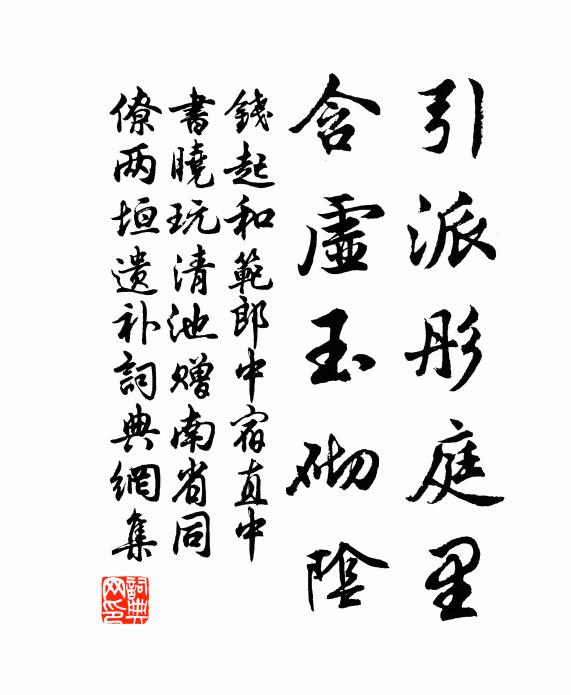 引派彤庭里
含虛玉砌陰
錢起和範郎中宿直中
書曉玩清池贈南省同
僚两垣遺补詞典網集
詞典
网印